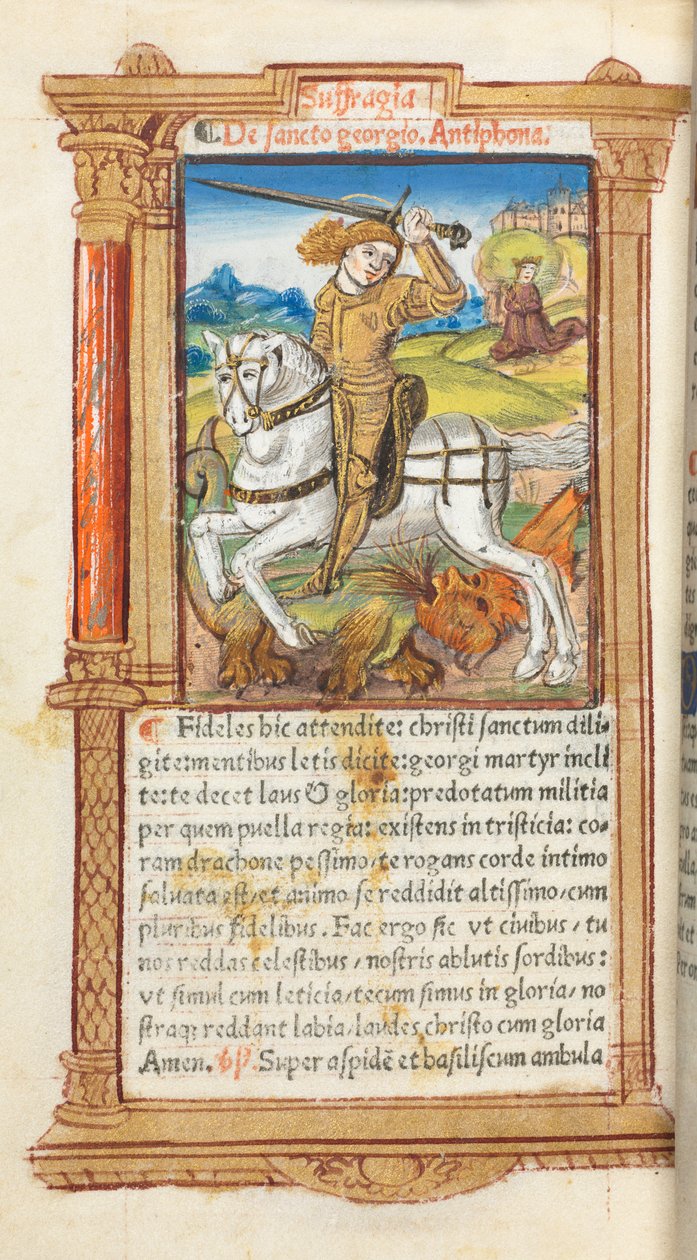 Suffragia
¶ De sancto georgio. Antiphona.
¶ Fideles hic attendite: christi sanctum dili-
gite: mentibus letis dicite: georgi martyr incli
te: te decet laus & gloria: predotatum militia
per quem puella regia: existens in tristicia: co-
ram drachone pessimo/ te rogans corde intimo
saluata est/ et animo se reddidit altissimo/ cum
pluribus fidelibus. Fac ergo sic vt ciuibus/ tu
nos reddas celestibus/ nostris ablutis sordibus:
vt simul cum leticia/ tecum simus in gloria/ no
straq; reddant labia/ laudes christo cum gloria
Amen. ℣. Super aspidē et basiliscum ambula